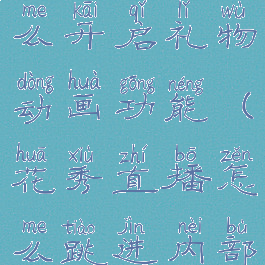 me kāi qǐ lǐ wù
么开启礼物
dòng huà gōng néng
动画功能（
huā xiù zhí bō zěn
花秀直播怎
me tiào jìn nèi bù
么跳进内部